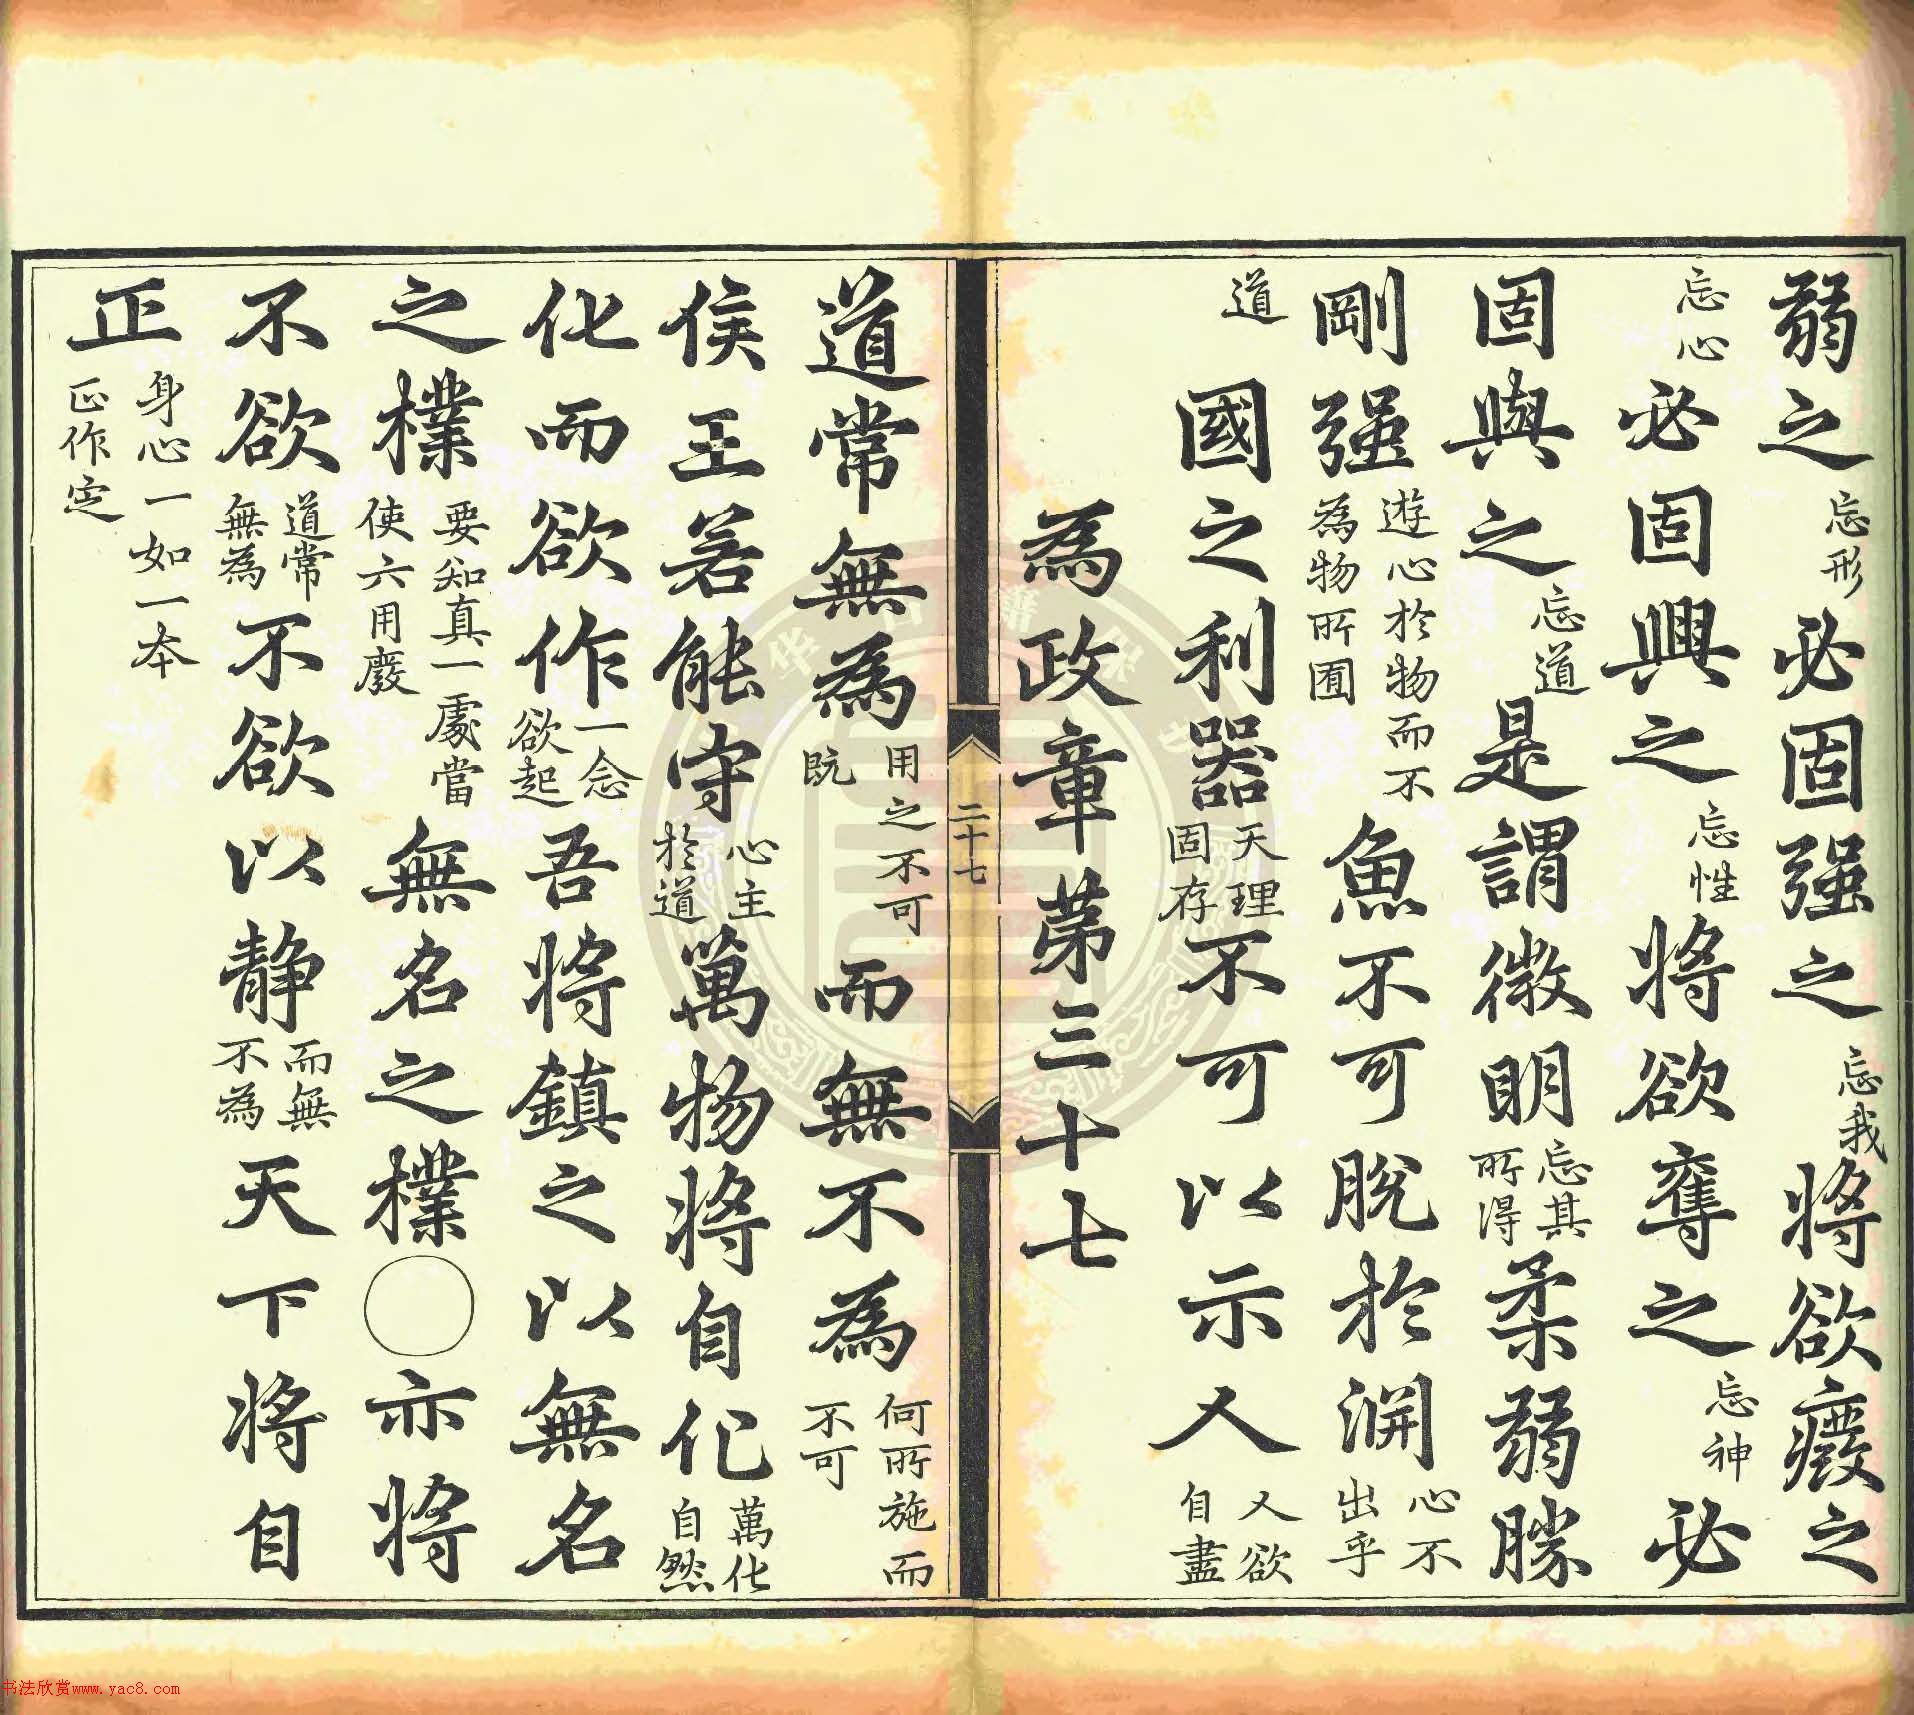 弱之忘形必固强之忘我將欲癈之
忘心必固興之忘性將欲奪之忘神必
固與之忘道是謂微明忘其所得柔弱勝
剛强遊心於物而不為物所囿魚不可脫於渊心不出乎
道國之利器天理固存不可以示人人欲自盡
為政章第三十七
二十七
道常無為用之不可既而無不為何所施而不可
侯王若能守心主於道萬物將自化萬化自然
化而欲作一念欲起吾將鎮之以無名
之樸要知真一處當使六用廢無名之樸○亦將
不欲道常無為不欲以静而無不為天下將自
正身心一如一本正作定
书法欣赏www.yac8.com